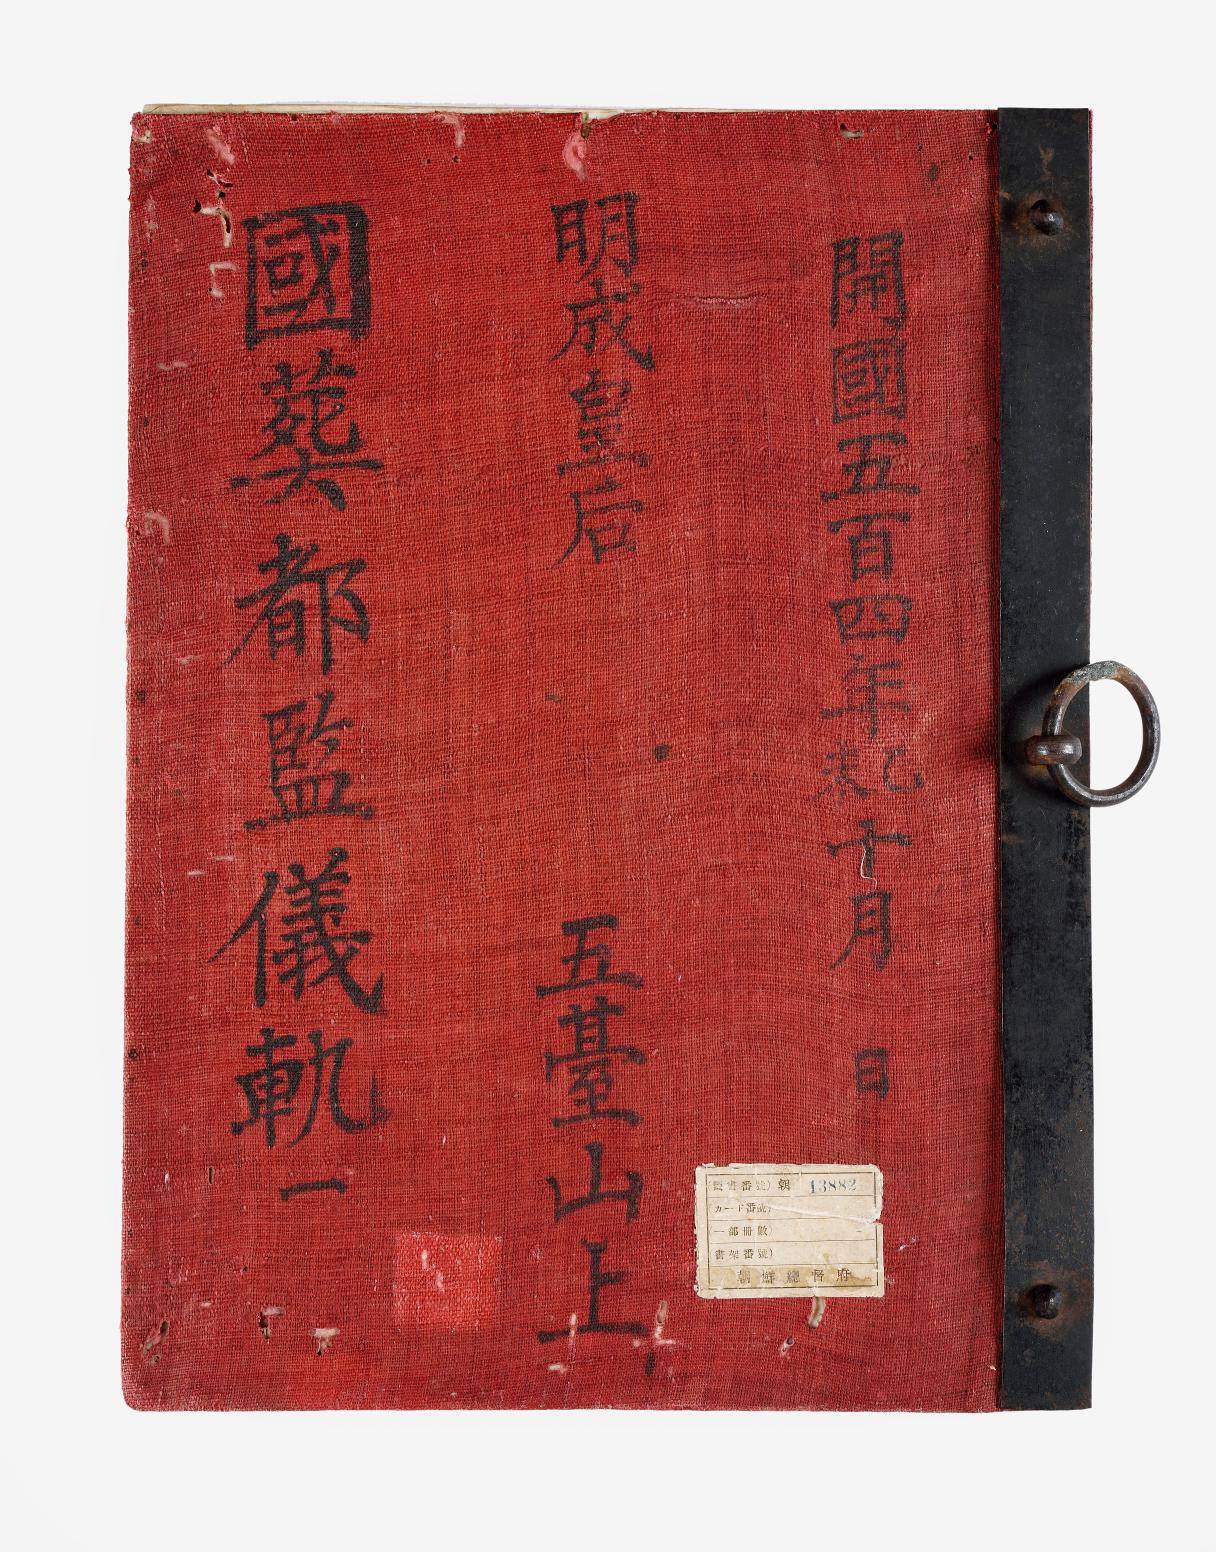 開國五百四年乙未十月 日
明成皇后 五臺山上
國葬都監儀軌一
圖書番號) 朝 13882
カード番號)
一部冊數)
書架番號)
朝鮮總督府